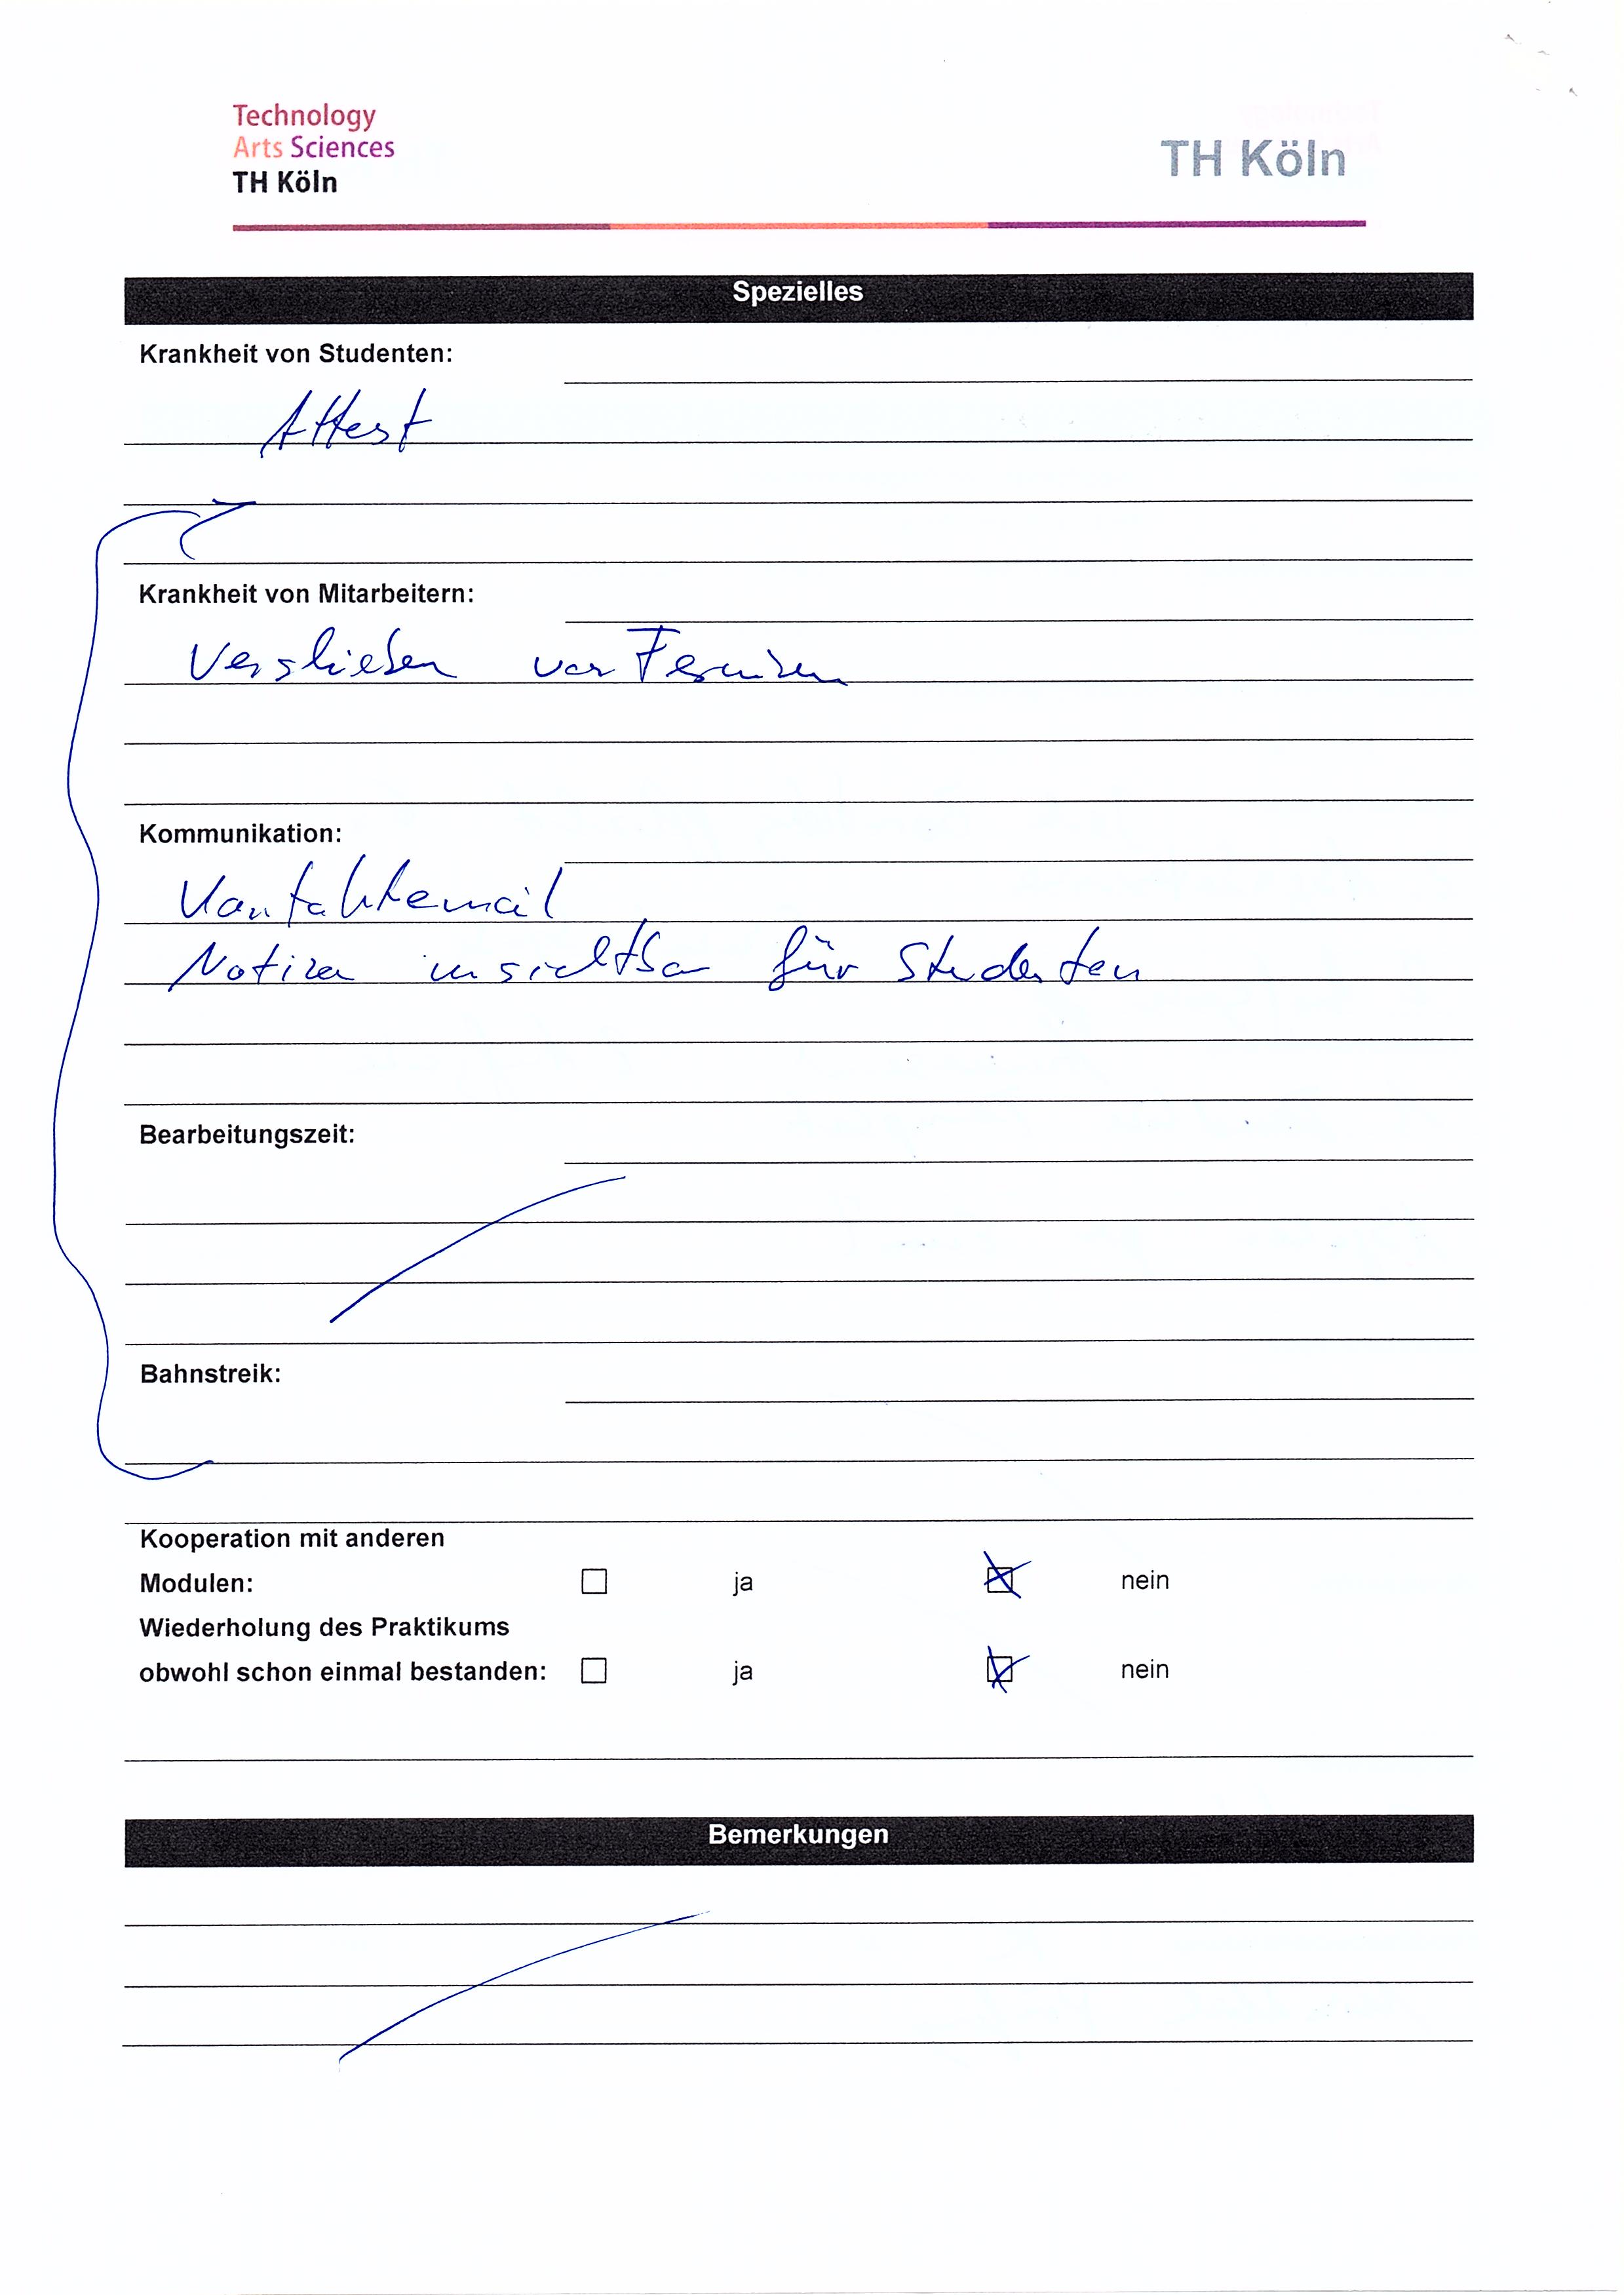 Technology
Arts Sciences
TH Köln
TH Köln
Spezielles
Krankheit von Studenten:
Attest
Krankheit von Mitarbeitern:
Verschieben von Terminen
Kommunikation:
Kontaktemail
Notizen unsichtbar für Studenten
Bearbeitungszeit:
Bahnstreik:
Kooperation mit anderen
Modulen: ja nein
Wiederholung des Praktikums
obwohl schon einmal bestanden: ja nein
Bemerkungen